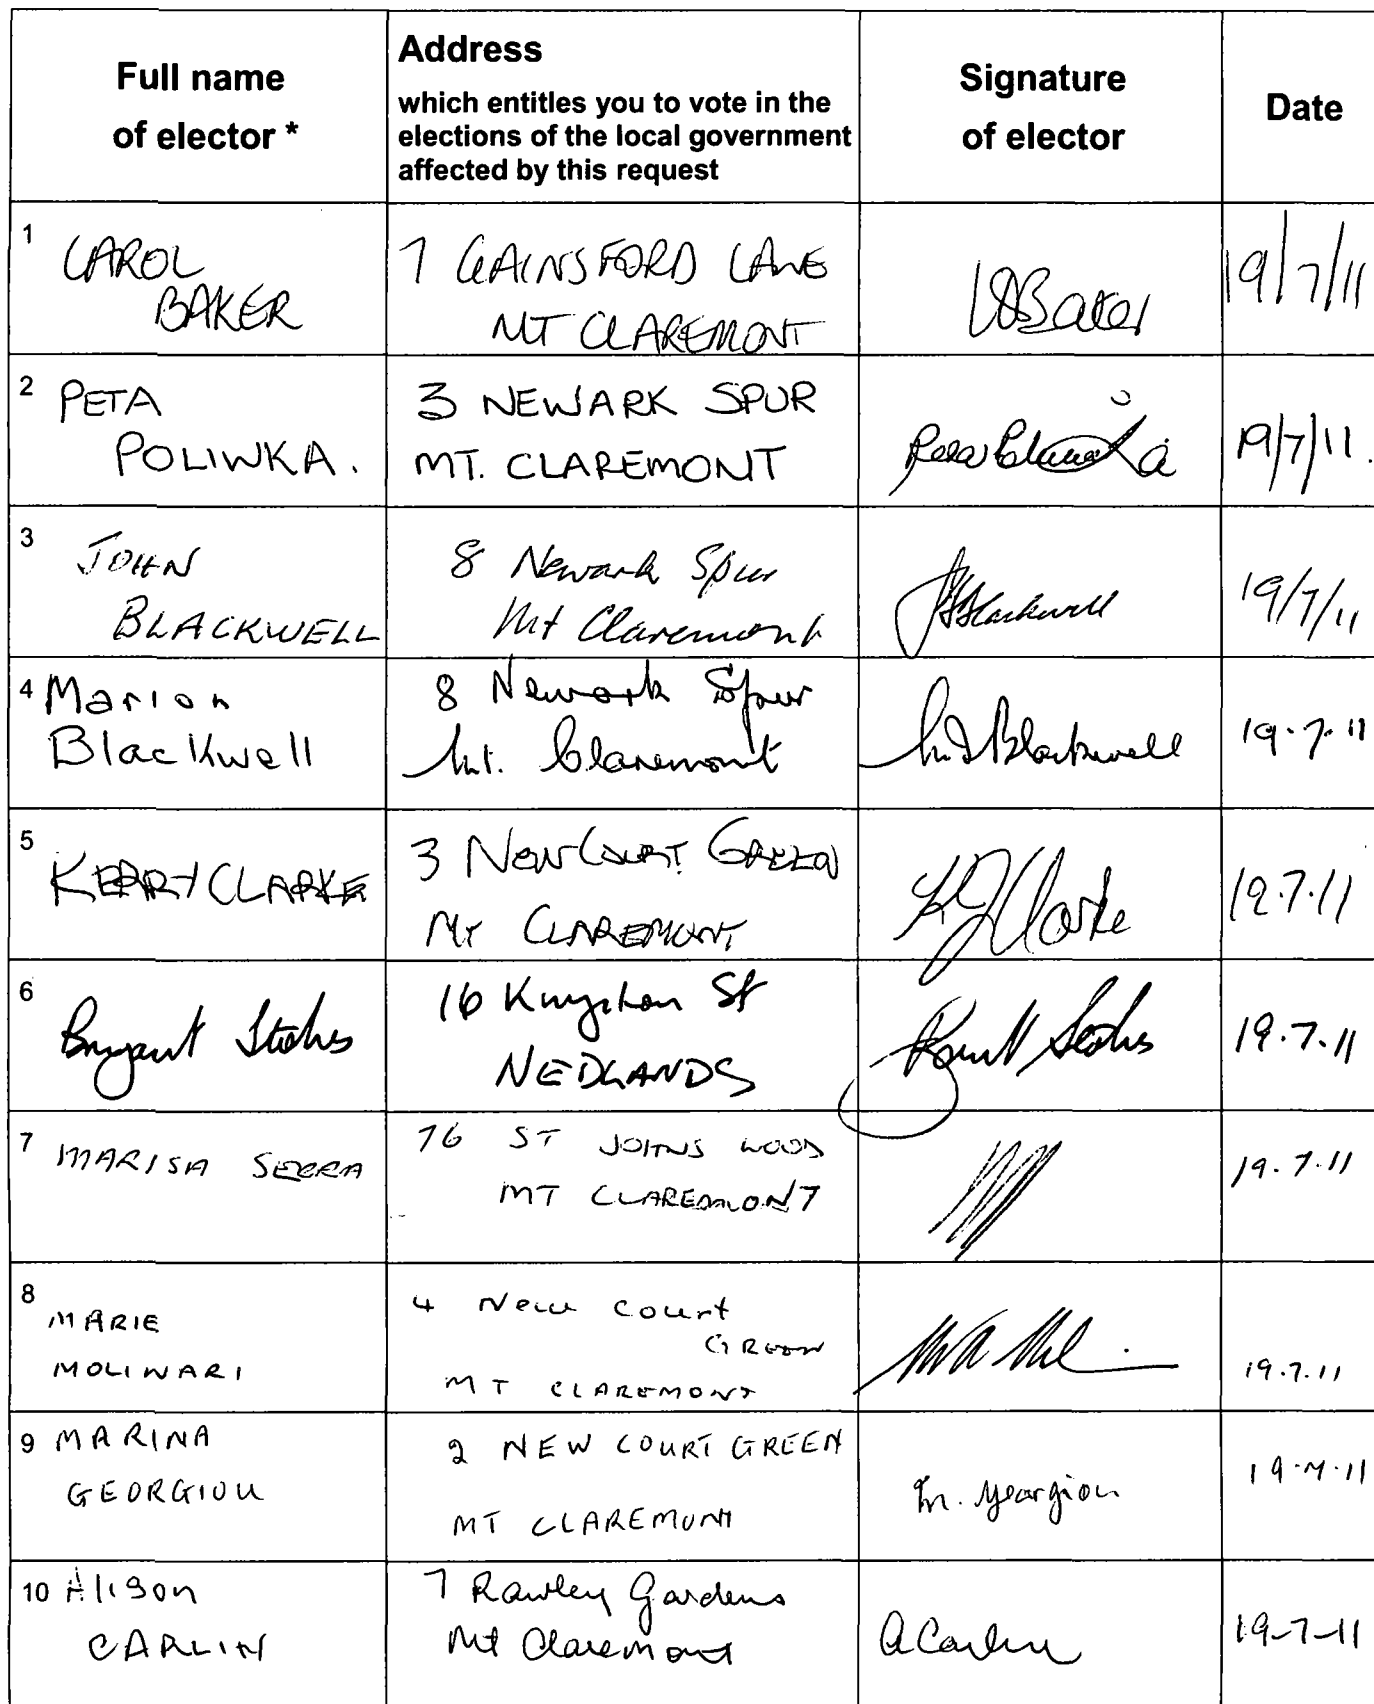 Full name
of elector *
Address
which entitles you to vote in the
elections of the local government
affected by this request
Signature
of elector
Date
1
CAROL
BAKER
7 GAINSFORD LANE
MT CLAREMONT
Baker
19/7/11
2
PETA
POLIWKA.
3 NEWARK SPUR
MT. CLAREMONT
19/7/11.
3
JOHN
BLACKWELL
8 Newark Spur
Mt Claremont
Blackwell
19/7/11
4
Marion
Blackwell
8 Newark Spur
Mt. Claremont
Blackwell
19.7.11
5
KERRY CLARKE
3 NEWCOURT GREEN
MT CLAREMONT
KJ Clarke
19.7.11
6
Bryant Stokes
16 Kingston St
NEDLANDS
Stokes
19.7.11
7
MARISA SERRA
76 ST JOHNS WOOD
MT CLAREMONT
19.7.11
8
MARIE
MOLINARI
4 New Court
GREEN
MT CLAREMONT
19.7.11
9
MARINA
GEORGIOU
2 NEW COURT GREEN
MT CLAREMONT
M. Georgiou
19.7.11
10
Alison
CARLIN
7 Rawley Gardens
Mt Claremont
A Carlin
19-7-11